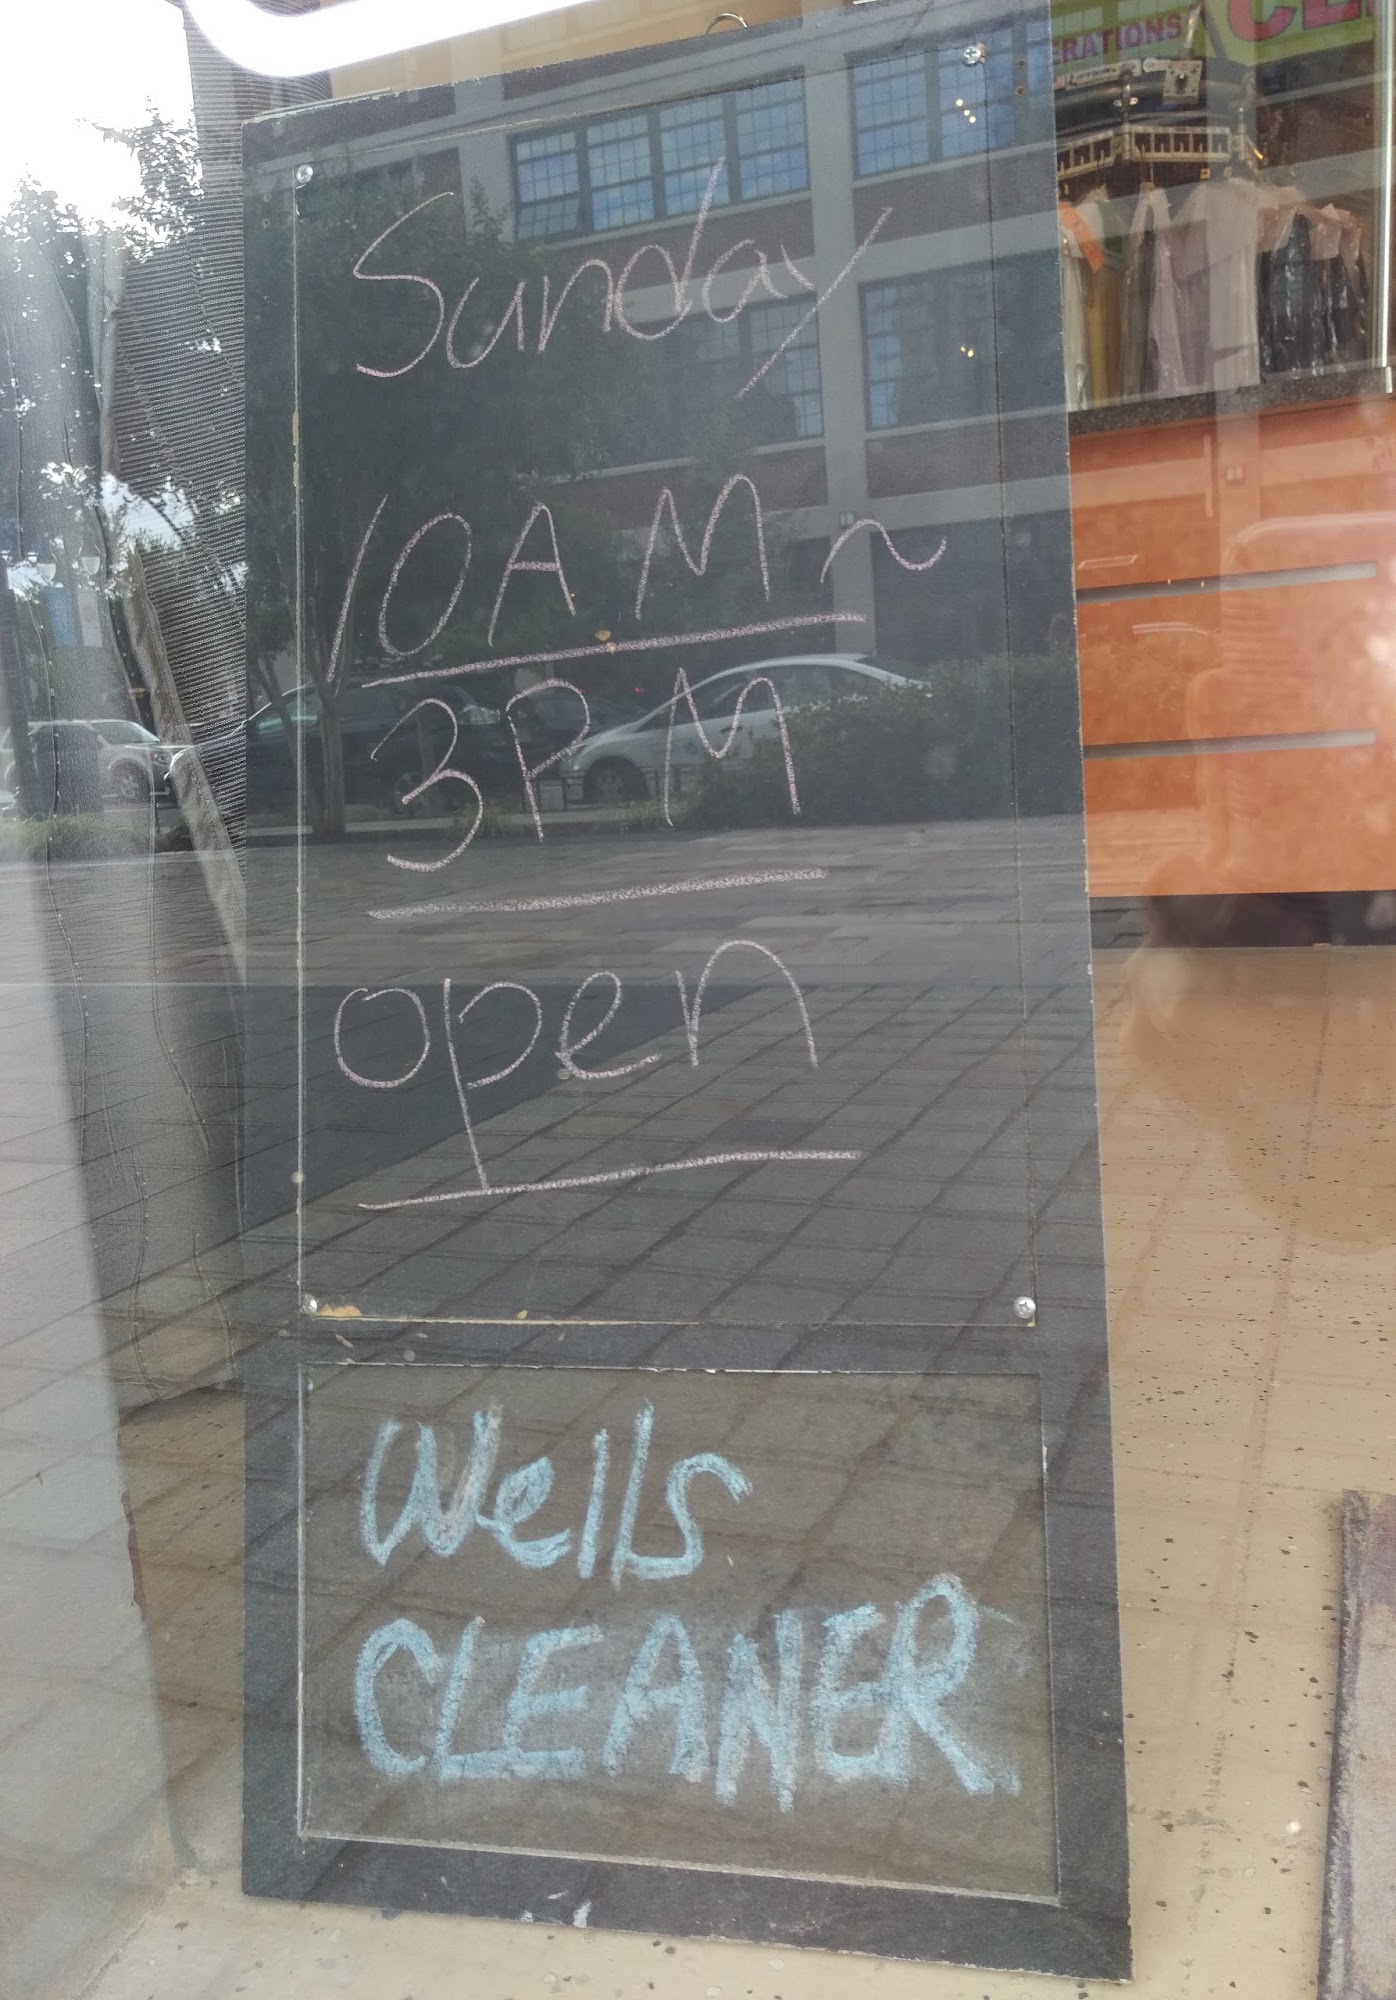 ERATIONS
Sunday
10AM~
3PM
open
Wells
CLEANER